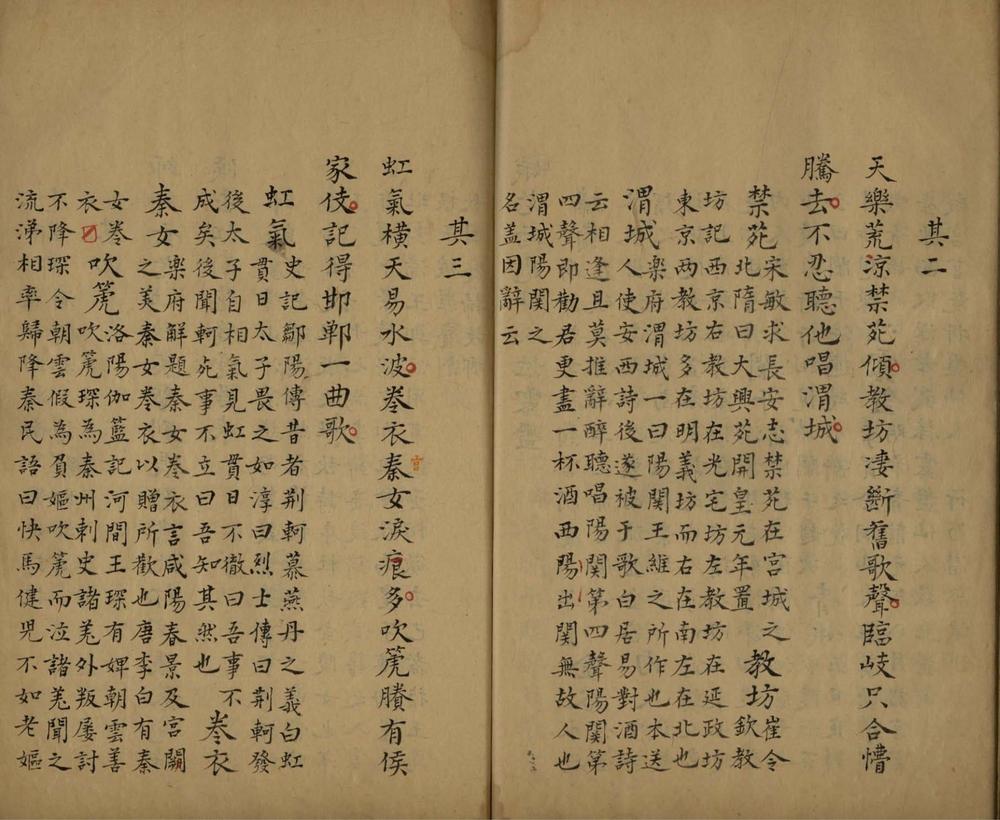 其二
天樂荒涼禁苑傾教坊凄斷舊歌聲臨岐只合懵
騰去不忍聽他唱渭城
禁苑宋敏求長安志禁苑在宮城之
北隋曰大興苑開皇元年置
教坊崔令
欽教
坊記西京右教坊在光宅坊左教坊在延政坊
東京两教坊多在明義坊而右在南左在北也
渭城樂府渭城一曰陽關王維之所作也本送
人使安西詩後遂被于歌白居易對酒詩
云相逢且莫推辭醉聽唱陽関第四聲陽関第
四聲即勸君更盡一杯酒西陽出関無故人也
渭城陽関之
名盖因辭云
其三
虹氣横天易水波卷衣秦女淚痕多吹箎賸有侯
家伎記得邯鄲一曲歌
虹氣史記鄒陽傳昔者荆軻慕燕丹之義白虹
貫日太子畏之如淳曰烈士傳曰荆軻發
後太子自相氣見虹貫日不徹曰吾事不
成矣後聞軻死事不立曰吾知其然也
卷衣
秦女樂府解題秦女卷衣言咸陽春景及宮闕
之美秦女卷衣以贈所歡也唐李白有秦
女卷
衣
吹箎洛陽伽藍記河間王琛有婢朝雲善
吹箎琛為秦州刺史諸羌外叛屢討
不降琛令朝雲假為貧嫗吹箎而泣諸羌聞之
流涕相率歸降秦民語曰快馬健児不如老嫗